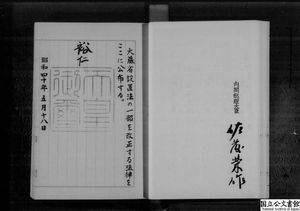 大蔵省設置法の一部を改正する法律を
ここに公布する。
裕仁
天皇御璽
昭和四十年五月十八日
内閣総理大臣
佐藤榮作
国立公文書館
National Archives of Japan